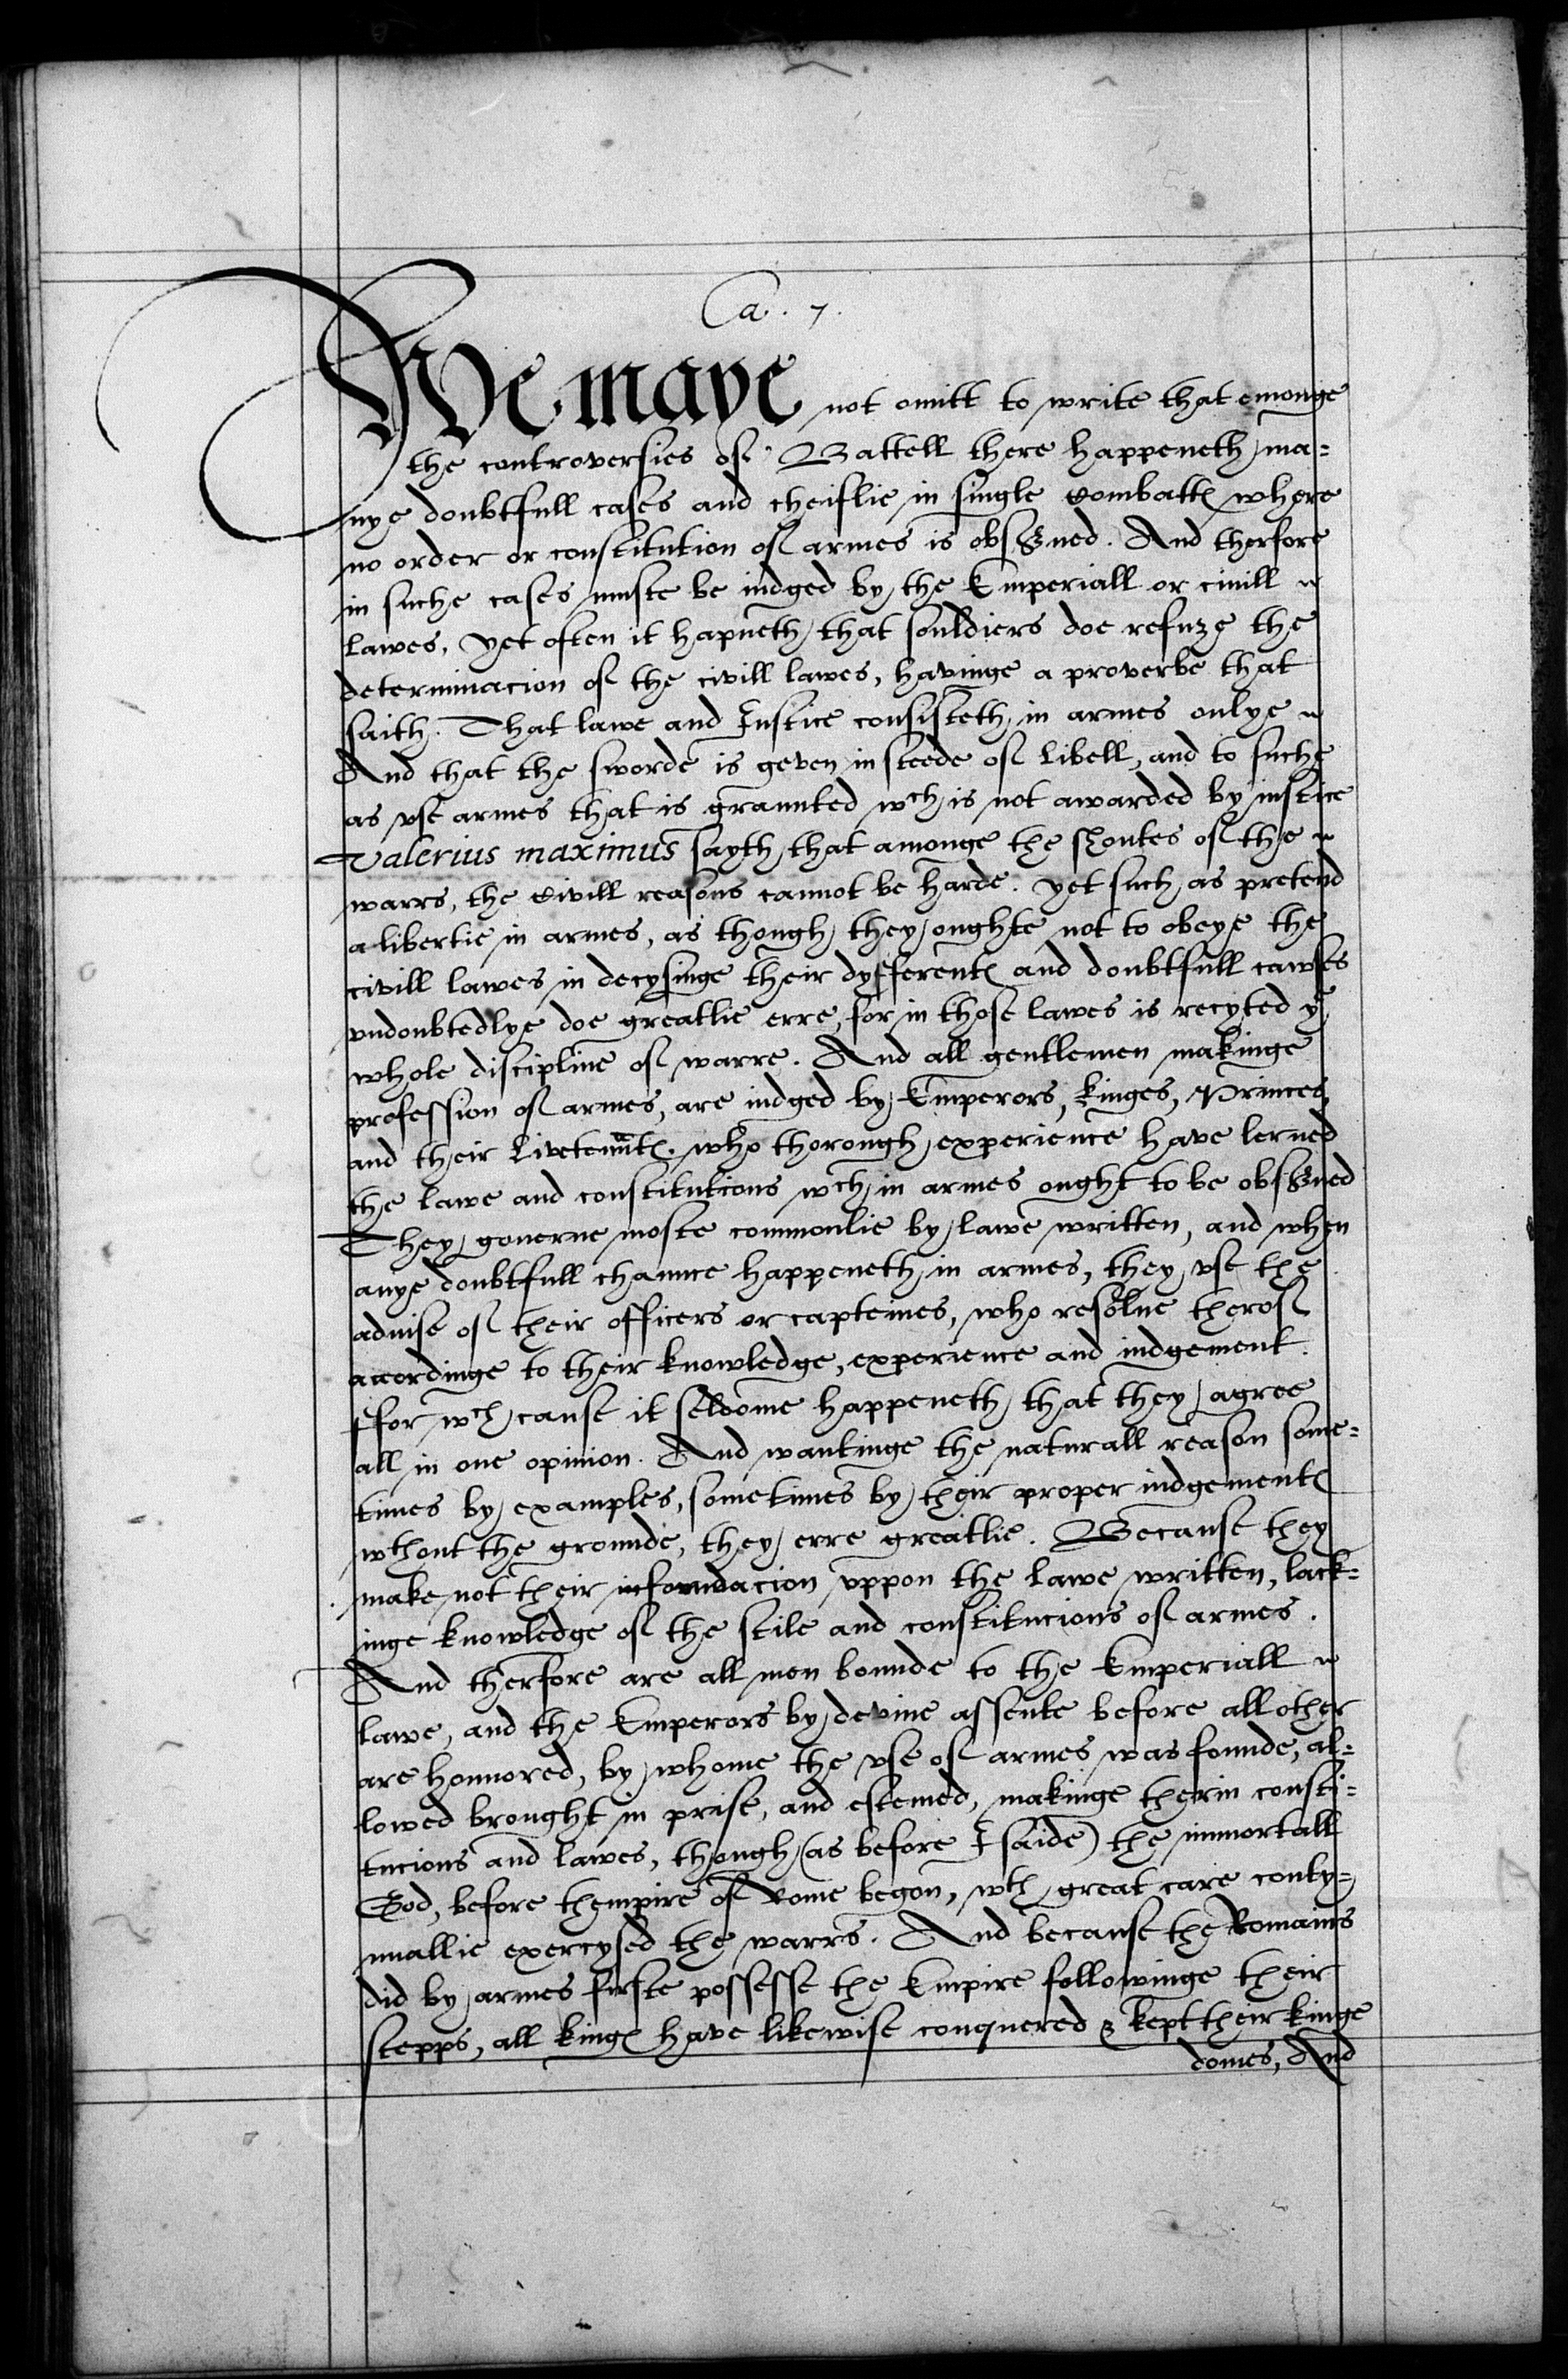 Ca. 7.
We maye not omitt to write that emonge
the controversies of Battell there happeneth ma=
nye doubtfull cases and cheiflie in single combattes where
no order or constitution of armes is observed. And therfore
in suche cases muste be iudged by the Emperiall or ciuill
lawes, yet often it hapneth that souldiers doe refuze the
determinacion of the civill lawes, havinge a proverbe that
saith. That lawe and Iustice consisteth in armes onlye
And that the sworde is geven in steede of libell, and to suche
as vse armes that is graunted wch is not awarded by iustice
Valerius maximus sayth that amonge the shoutes of the
warrs, the Civill reasons cannot be harde. yet such as pretend
a libertie in armes, as though they oughte not to obeye the
civill lawes in decysinge their dyfferentes and doubtfull cawses
vndoubtedlye doe greatlie erre, for in those lawes is recyted ye
whole discipline of warre. And all gentlemen makinge
profession of armes, are iudged by Emperors, kinges, Princes,
and their Livetenntes. who thorough experience have lerned
the lawe and constitutions wch in armes ought to be observed
They governe moste commonlie by lawe written, and when
anye doubtfull chaunce happeneth in armes, they vse the
aduise of their officers or capteines, who resolue therof
accordinge to their knowledge, experience and iudgement.
ffor wch cause it seldome happeneth that they agree
all in one opinion. And wantinge the naturall reason some=
times by examples, sometimes by their proper iudgementes
wthout the grounde, they erre greatlie. Because they
make not their foundacion vppon the lawe written, lack=
inge knowledge of the stile and constitucions of armes.
And therfore are all men bounde to the Emperiall
lawe, and the Emperors by devine assente before all other
are honnored, by whome the vse of armes was founde, al=
lowed brought in prise, and estemed, makinge therin consti=
tucions and lawes, though (as before I saide) the immortall
God, before thempire of Rome begon, wth great care conty=
nuallie exercysed the warrs. And because the Romains
did by armes firste possesse the Empire followinge their
stepps, all kinges have likewise conquered & kept their kinge
domes, And